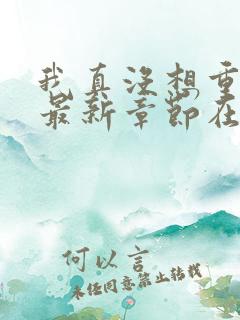 我真没想重
最新章节在
何以言
未经同意禁止转载